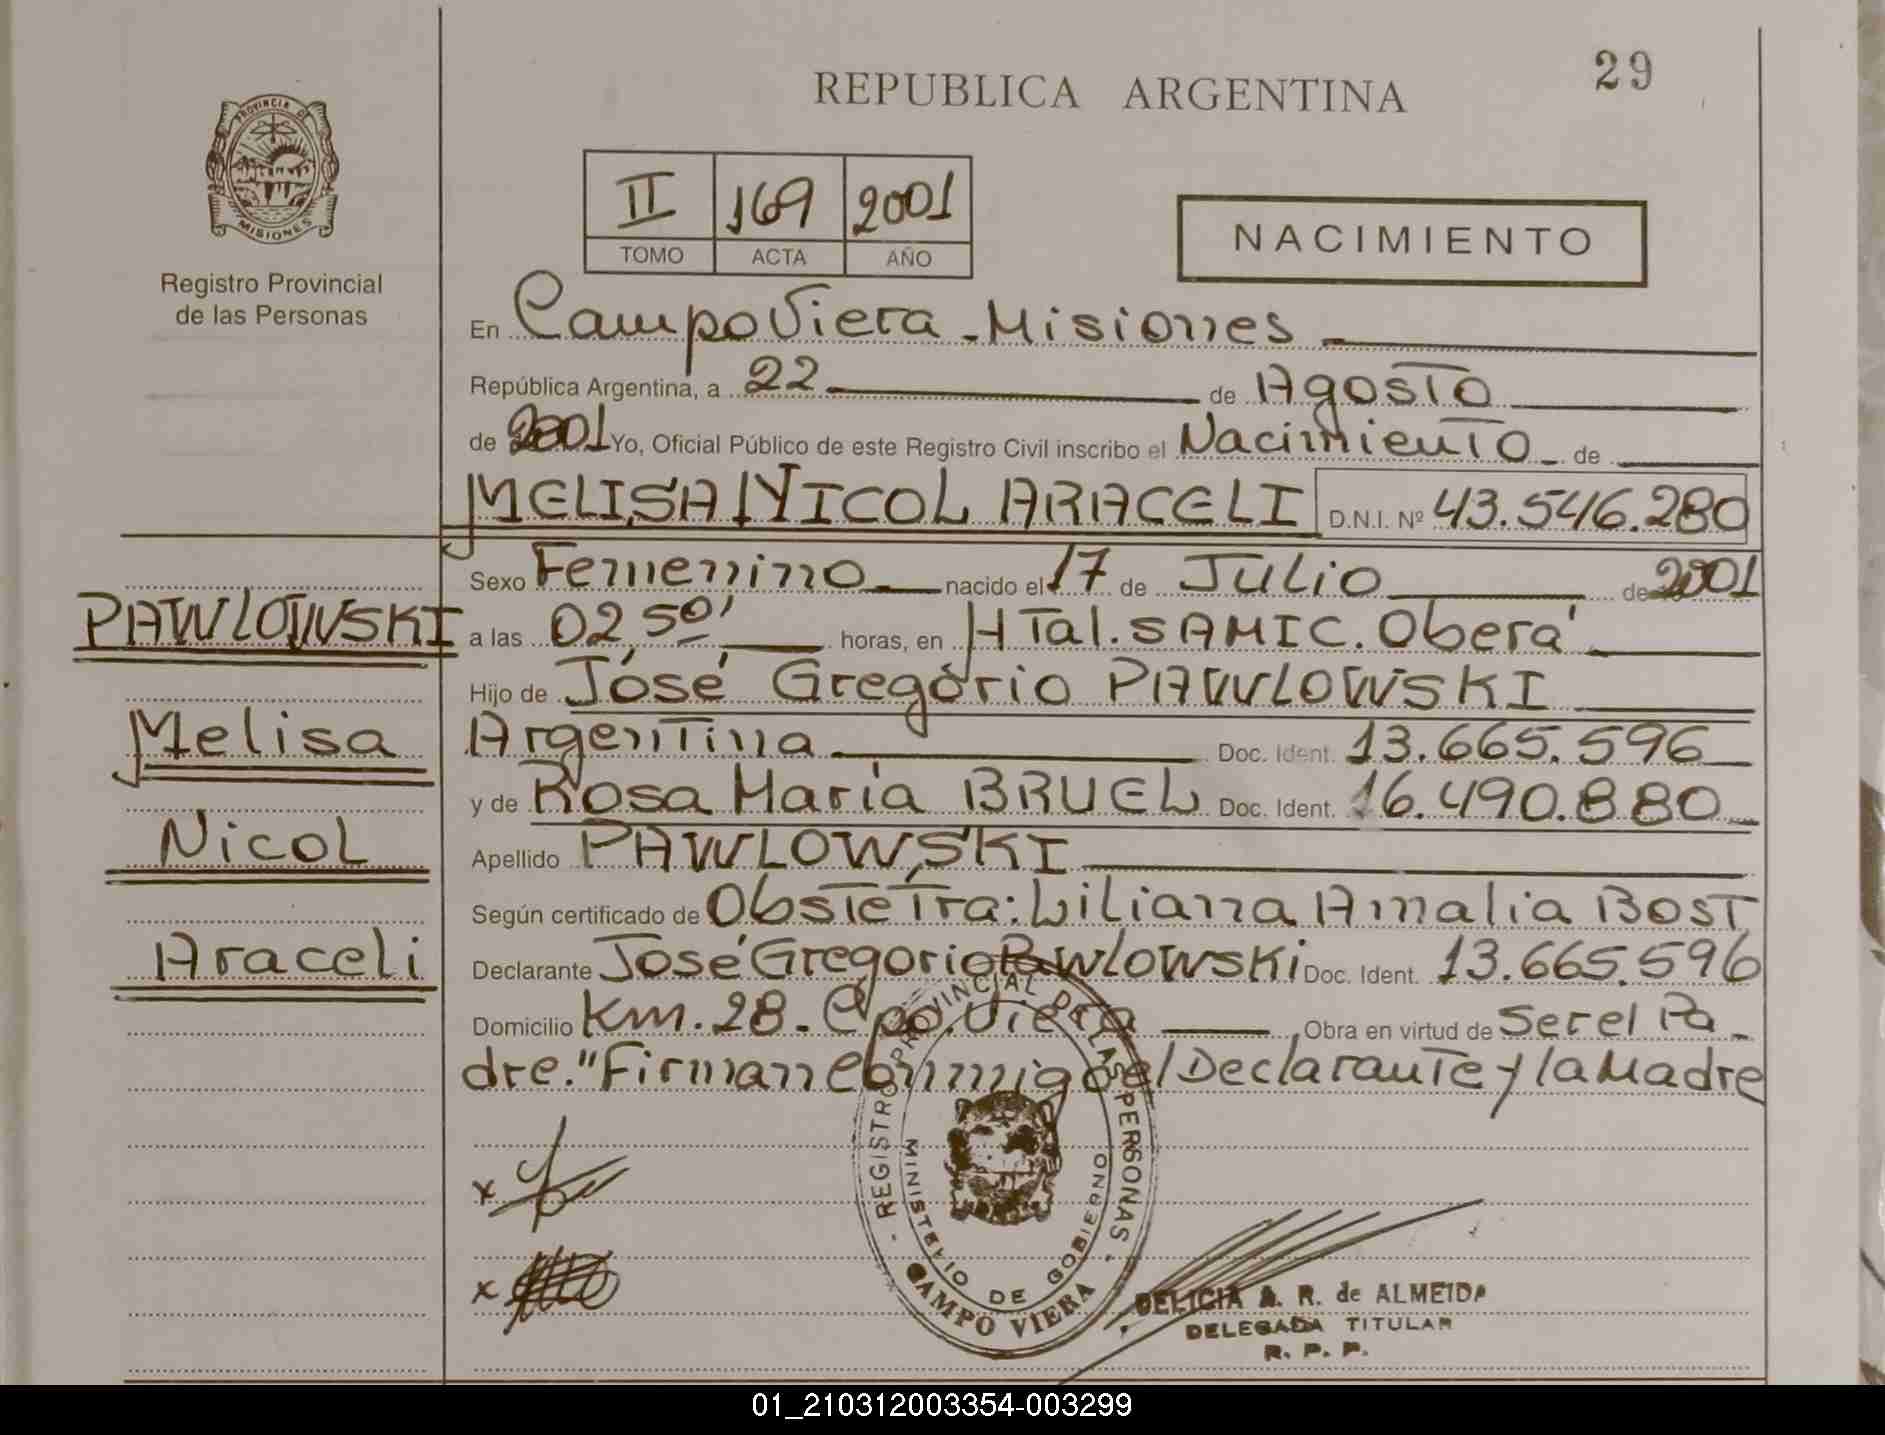 29
REPUBLICA ARGENTINA
PROVINCIA DE
MISIONES
Registro Provincial
de las Personas
II 169 2001
TOMO ACTA AÑO
NACIMIENTO
En Campo Viera - Misiones
República Argentina, a 22 de Agosto
de 2001 Yo, Oficial Público de este Registro Civil inscribo el Nacimiento de
MELISA NICOL ARACELI D.N.I. Nº 43.546.280
Sexo Femenino nacido el 17 de Julio de 2001
PAWLOWSKI
a las 02,50' horas, en HTal. SAMIC. Oberá
Hijo de José Gregorio PAWLOWSKI
Melisa
Argentina Doc. Ident. 13.665.596
y de Rosa María BRUEL Doc. Ident. 16.490.880
Nicol
Apellido PAWLOWSKI
Según certificado de Obstetra: Liliana Amalia Bost
Araceli
Declarante José Gregorio Pawlowski Doc. Ident. 13.665.596
Domicilio Km. 28. Cpo. Viera Obra en virtud de Ser el Pa-
dre." Firman Conmigo el Declarante y la Madre
x
x
REGISTRO PROVINCIAL DE LAS PERSONAS
MINISTERIO DE GOBIERNO
CAMPO VIERA
DELICIA A. R. de ALMEIDA
DELEGADA TITULAR
R. P. P.
01_210312003354-003299